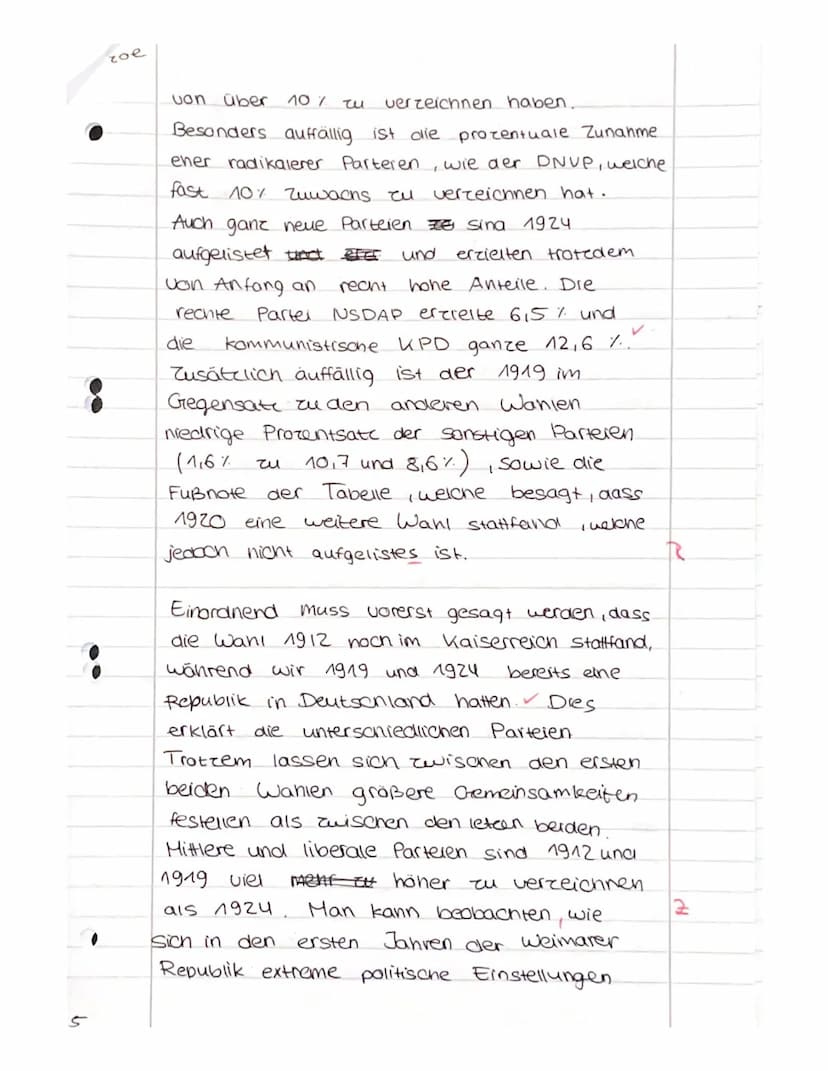 zoe
von über 10 % zu verzeichnen haben.
Besonders auffällig ist die prozentuale Zunahme
eher radikalerer Parteien, wie der DNVP, welche
fast 10% Zuwachs zu verzeichnen hat.
Auch ganz neue Parteien sind 1924
aufgelistet und erzielten trotzdem
von Anfang an recht hohe Anteile. Die
rechte Partei NSDAP erzielte 6,5 % und
die kommunistische KPD ganze 12,6 %. ✓
Zusätzlich auffällig ist der 1919 im
Gegensatz zu den anderen Wahlen
niedrige Prozentsatz der sonstigen Parteien
(1,6% zu 10,7 und 8,6%), sowie die
Fußnote der Tabelle, welche besagt, dass
1920 eine weitere Wahl stattfand, welche
jedoch nicht aufgelistes ist. R
Einordnend muss vorerst gesagt werden, dass
die Wahl 1912 noch im Kaiserreich stattfand,
während wir 1919 und 1924 bereits eine
Republik in Deutschland hatten. ✓ Dies
erklärt die unterschiedlichen Parteien
Trotzem lassen sich zwischen den ersten
beiden Wahlen größere Gemeinsamkeiten
festellen als zwischen den letzen beiden.
Mittlere und liberale Parteien sind 1912 und
1919 viel höher zu verzeichnen
als 1924. Man kann beobachten, wie Z
sich in den ersten Jahren der Weimarer
Republik extreme politische Einstellungen
5